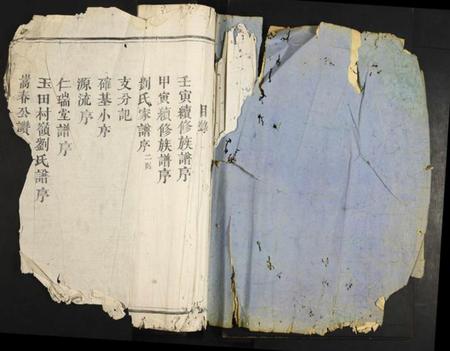 目錄
壬寅續修族譜序
甲寅續修族譜序
劉氏家譜序二則
支分記
確基小序
源流序
仁瑞堂譜序
玉田村嶺劉氏譜序
嵩春公讚